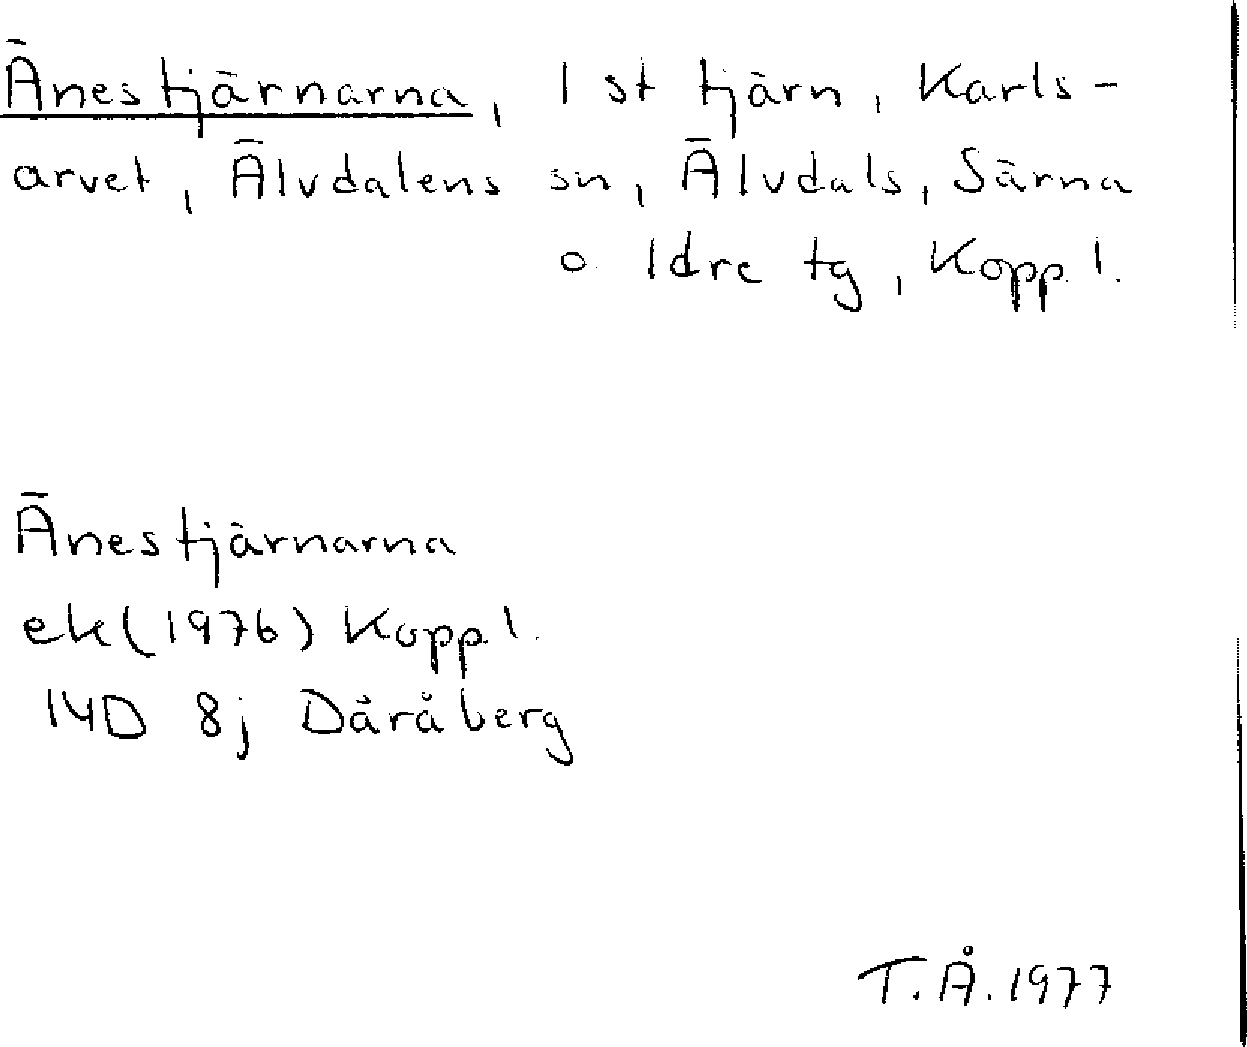 Änestjärnarna, 1 st tjärn, Karls-
arvet, Älvdalens sn, Älvdals, Särna
o Idre tg, Kopp. l.
Änestjärnarna
ek (1976) Kopp. l.
14D 8j Däråberg
T.Å. 1977